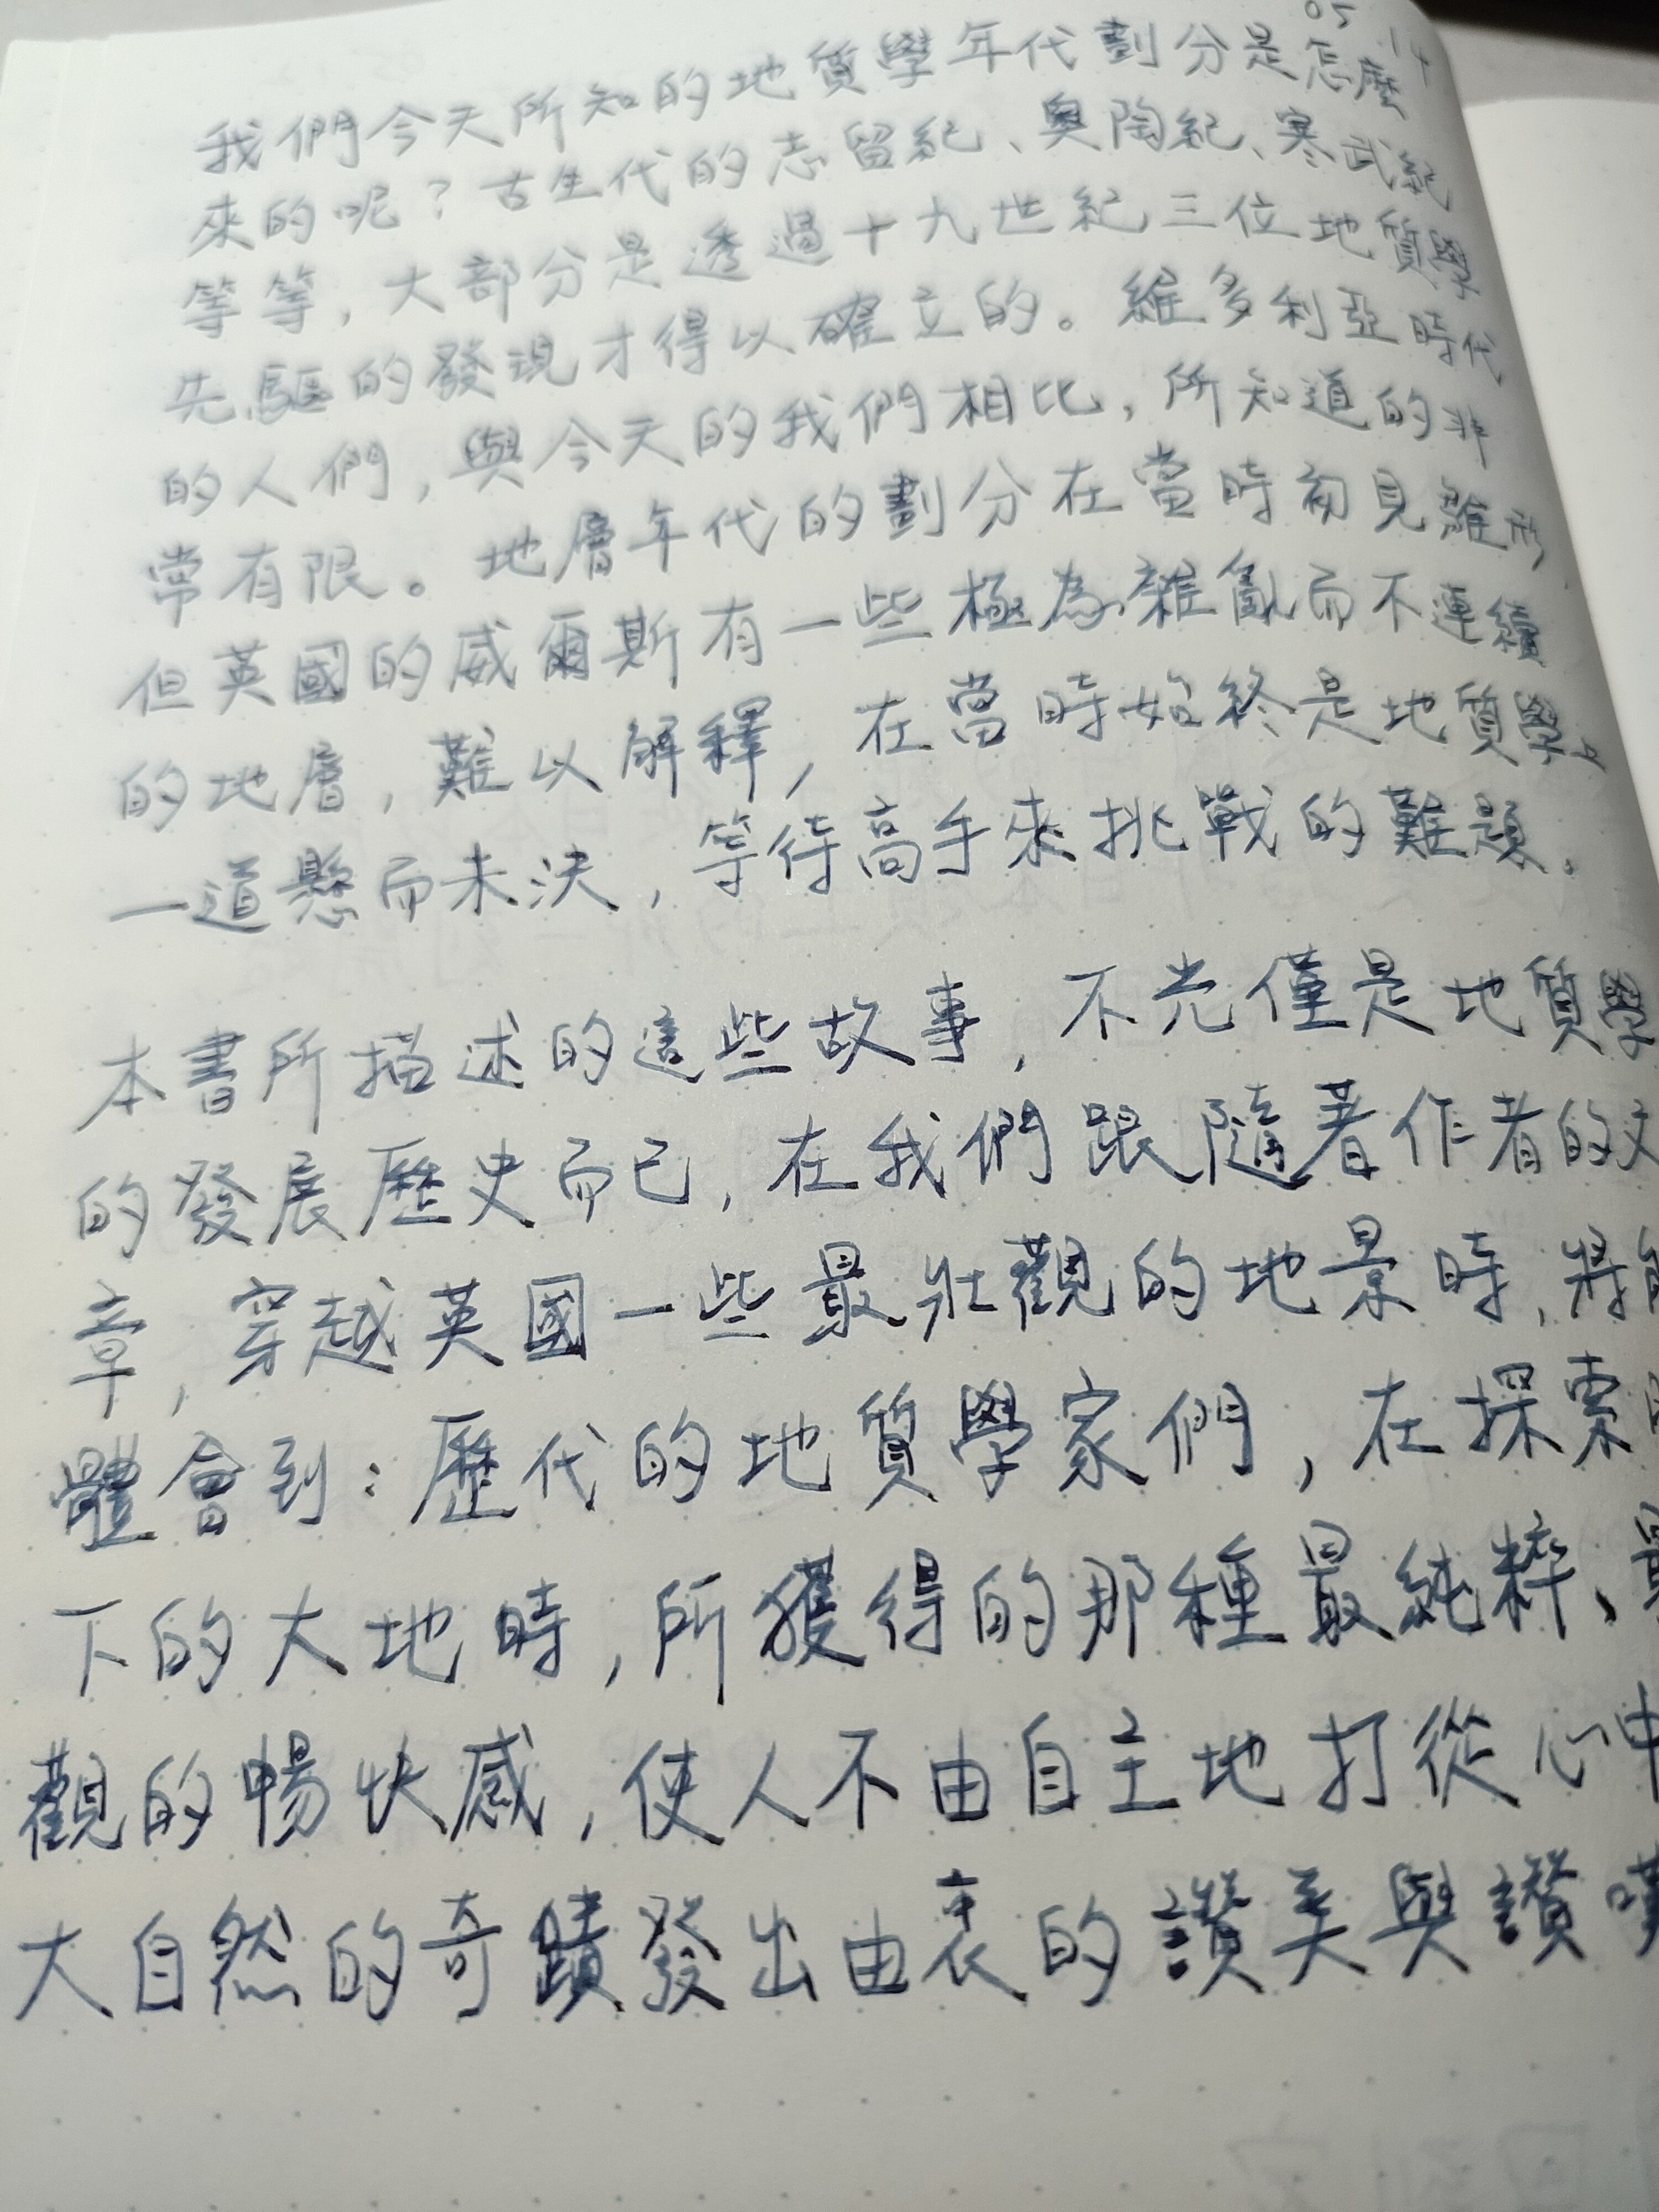 05 14
我們今天所知的地質學年代劃分是怎麼
來的呢？古生代的志留紀、奧陶紀、寒武紀
等等，大部分是透過十九世紀三位地質學
先驅的發現才得以確立的。維多利亞時代
的人們，與今天的我們相比，所知道的非
常有限。地層年代的劃分在當時初見雛形，
但英國的威爾斯有一些極為雜亂而不連續
的地層，難以解釋，在當時始終是地質學上
一道懸而未決，等待高手來挑戰的難題。
本書所描述的這些故事，不光僅是地質學
的發展歷史而已，在我們跟隨著作者的文
章，穿越英國一些最壯觀的地景時，將能
體會到：歷代的地質學家們，在探索
下的大地時，所獲得的那種最純粹、最
觀的暢快感，使人不由自主地打從心中
大自然的奇蹟發出由衷的讚美與讚嘆